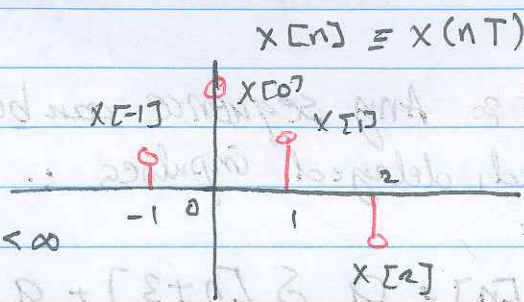 x[n] ≡ x(nT)
x[0]
x[-1]
x[1]
2
-1 0 1
<∞
x[2]